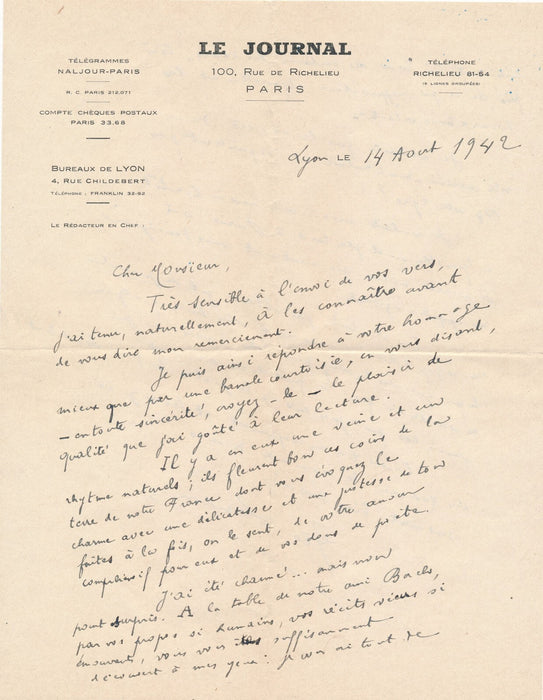 LE JOURNAL
100, RUE DE RICHELIEU
PARIS
TÉLÉGRAMMES
NALJOUR-PARIS
R. C. PARIS 212.071
COMPTE CHÈQUES POSTAUX
PARIS 33.68
TÉLÉPHONE
RICHELIEU 81-54
(5 LIGNES GROUPÉES)
BUREAUX DE LYON
4, RUE CHILDEBERT
TÉLÉPHONE : FRANKLIN 32-92
LE RÉDACTEUR EN CHEF :
Lyon LE 14 Aout 1942
Cher Monsieur,
Très sensible à l'envoi de vos vers,
j'ai tenu, naturellement, à les connaître avant
de vous dire mon remerciement.
Je puis ainsi répondre à votre hommage
mieux que par une banale courtoisie, en vous disant,
– en toute sincérité, croyez-le – le plaisir de
qualité que j'ai goûté à leur lecture.
Il y a en eux une veine et un
rhytme naturels ; ils fleurent bon ces coins de la
terre de notre France dont vous évoquez le
charme avec une délicatesse et une justesse de ton
faites à la fois, on le sent, de votre amour
compréhensif pour eux et de vos dons de poète.
J'ai été charmé... mais non
point surpris. A la table de notre ami Bachs,
par vos propos si humains, vos récits si
émouvants, vous vous êtes suffisamment
découvert à mes yeux : je tout de